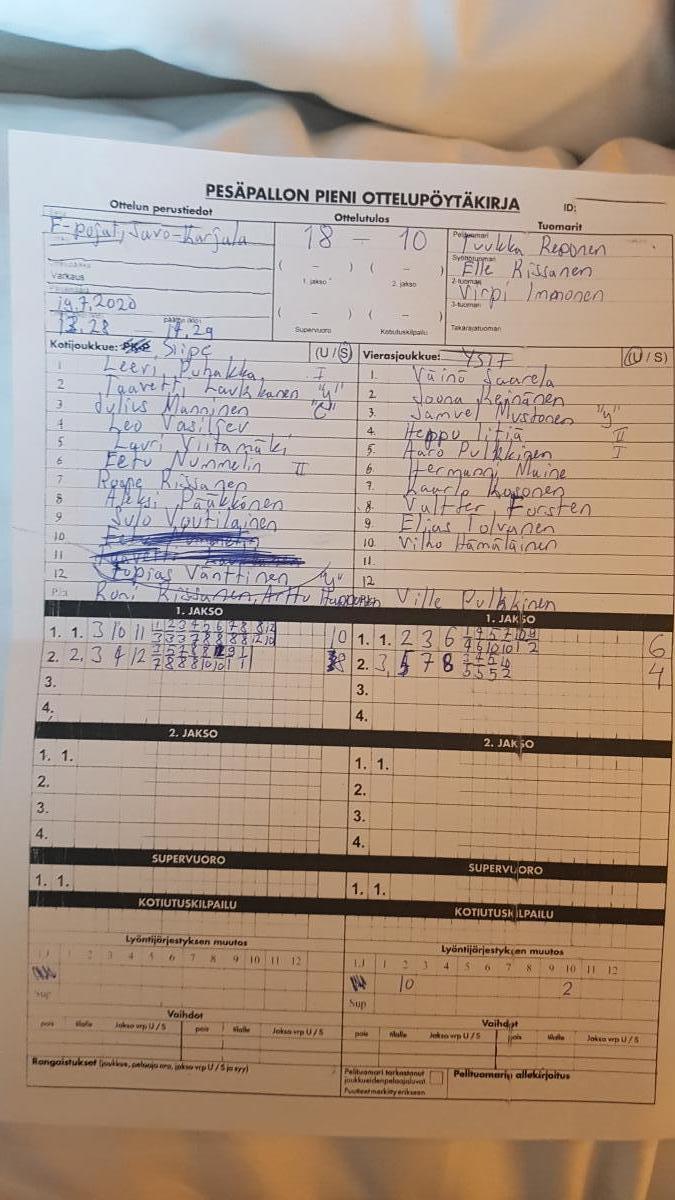 PESÄPALLON PIENI OTTELUPÖYTÄKIRJA
ID:
Ottelun perustiedot
Ottelutulos
Tuomarit
F-pojat, Savo-Karjala
18 - 10
Pelituomari
Tuukka Reponen
Syöttötuomari
Elle Rissanen
( - ) ( - )
1. jakso
2. jakso
2-tuomari
Virpi Immonen
Varkaus
3-tuomari
19.7.2020
( - ) ( - )
13.28 - 14.29
Supervuoro
Kotiutuskilpailu
Takarajatuomari
Kotijoukkue: Siipe (U/S)
Vierasjoukkue: YSIF (U/S)
1 Leevi Puhakka I
2 Taavetti Laukkanen "y"
3 Julius Manninen "C"
4 Leo Vasiljev
5 Lauri Viitamäki
6 Eetu Nummelin II
7 Roope Rissanen
8 Aleksi Pääkkönen
9 Sulo Voutilainen
10
11
12 Topias Vänttinen "y"
Roni Rissanen, Arttu Hupponen
1. Väinö Saarela
2. Joona Keinänen
3. Samuel Mustonen "y"
4. Heppu Iitiä II
5. Aaro Pulkkinen I
6. Hermanni Muine
7. Kaarlo Kosonen
8. Valtter Forsten
9. Elias Tolvanen
10. Vilho Hämäläinen
11.
12
Ville Pulkkinen
1. JAKSO
1. 1. 3 10 11
10
2. 2. 3 9 12
8
3.
4.
1. JAKSO
1. 1. 2 3 6
6
2. 3, 5 7 8
4
3.
4.
2. JAKSO
1. 1.
2.
3.
4.
2. JAKSO
1. 1.
2.
3.
4.
SUPERVUORO
1. 1.
SUPERVUORO
1. 1.
KOTIUTUSKILPAILU
KOTIUTUSKILPAILU
Lyöntijärjestyksen muutos
1 2 3 4 5 6 7 8 9 10 11 12
Sup
Lyöntijärjestyksen muutos
1.J 1 2 3 4 5 6 7 8 9 10 11 12
10 2
Sup
Vaihdot
pois tilalle Jakso vrp U / S pois tilalle Jakso vrp U / S
Vaihdot
pois tilalle Jakso vrp U / S pois tilalle Jakso vrp U / S
Rangaistukset (joukkue, pelaaja nro, jakso vrp U / S ja syy)
Pelituomari tarkastanut
joukkueidenpelaajaluvat
Puutteet merkitty erikseen
Pelituomarin allekirjoitus